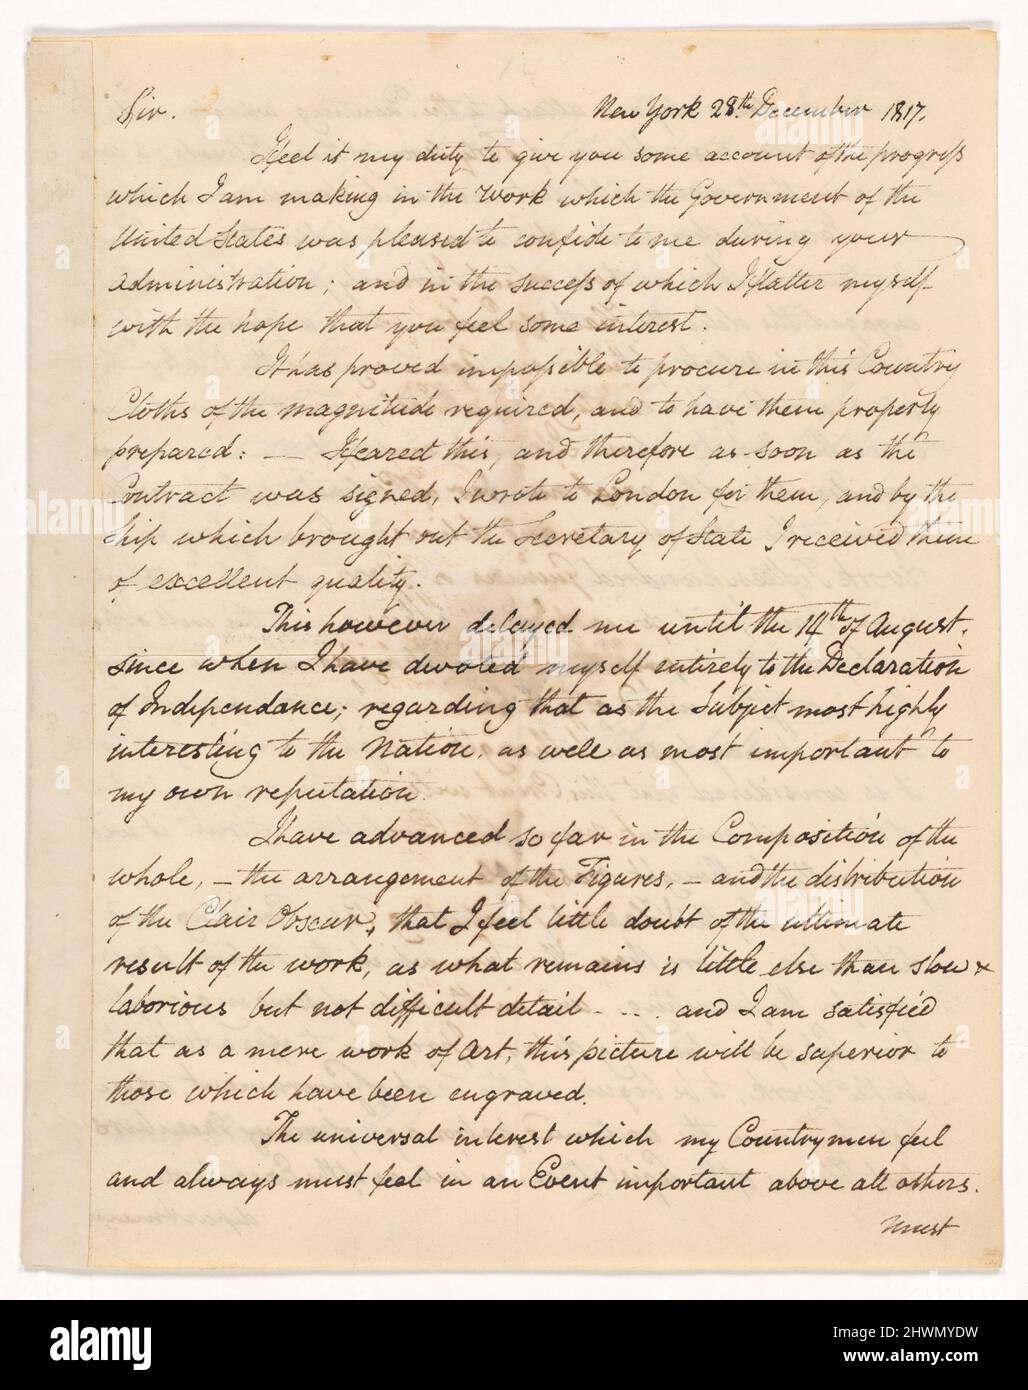 Sir. New York 28th. December 1817.
I feel it my duty to give you some account of the progress
which I am making in the Work which the Government of the
United States was pleased to confide to me during your
administration; and in the success of which I flatter myself
with the hope that you feel some interest.
It has proved impossible to procure in this Country
Cloths of the magnitude required, and to have them properly
prepared: — I feared this, and therefore as soon as the
Contract was signed, I wrote to London for them, and by the
Ship which brought out the Secretary of State I received them
of excellent quality.
This however delayed me until the 14th of August.
since when I have devoted myself entirely to the Declaration
of Independance; regarding that as the Subject most highly
interesting to the Nation, as well as most important to
my own reputation.
I have advanced so far in the Composition of the
whole, — the arrangement of the Figures, — and the distribution
of the Clair Obscur, that I feel little doubt of the ultimate
result of the work, as what remains is little else than slow &
laborious but not difficult detail - - . . and I am satisfied
that as a mere work of Art, this picture will be superior to
those which have been engraved.
The universal interest which my Countrymen feel
and always must feel in an Event important above all others.
must
alamy
Image ID: 2HWMYDW
www.alamy.com